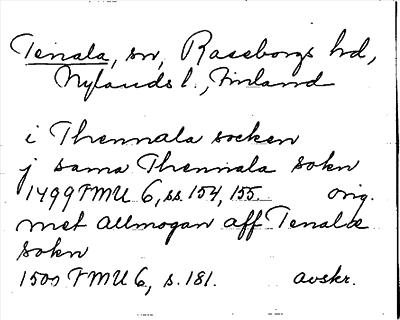 Tenala, sn, Raseborgs hd,
Nylands l., Finland
i Thennala socken
j sama Thennala sokn
1499 FMU 6, ss. 154, 155. orig.
met allmogan aff Tenalæ
sokn
1500 FMU 6, s. 181. avskr.